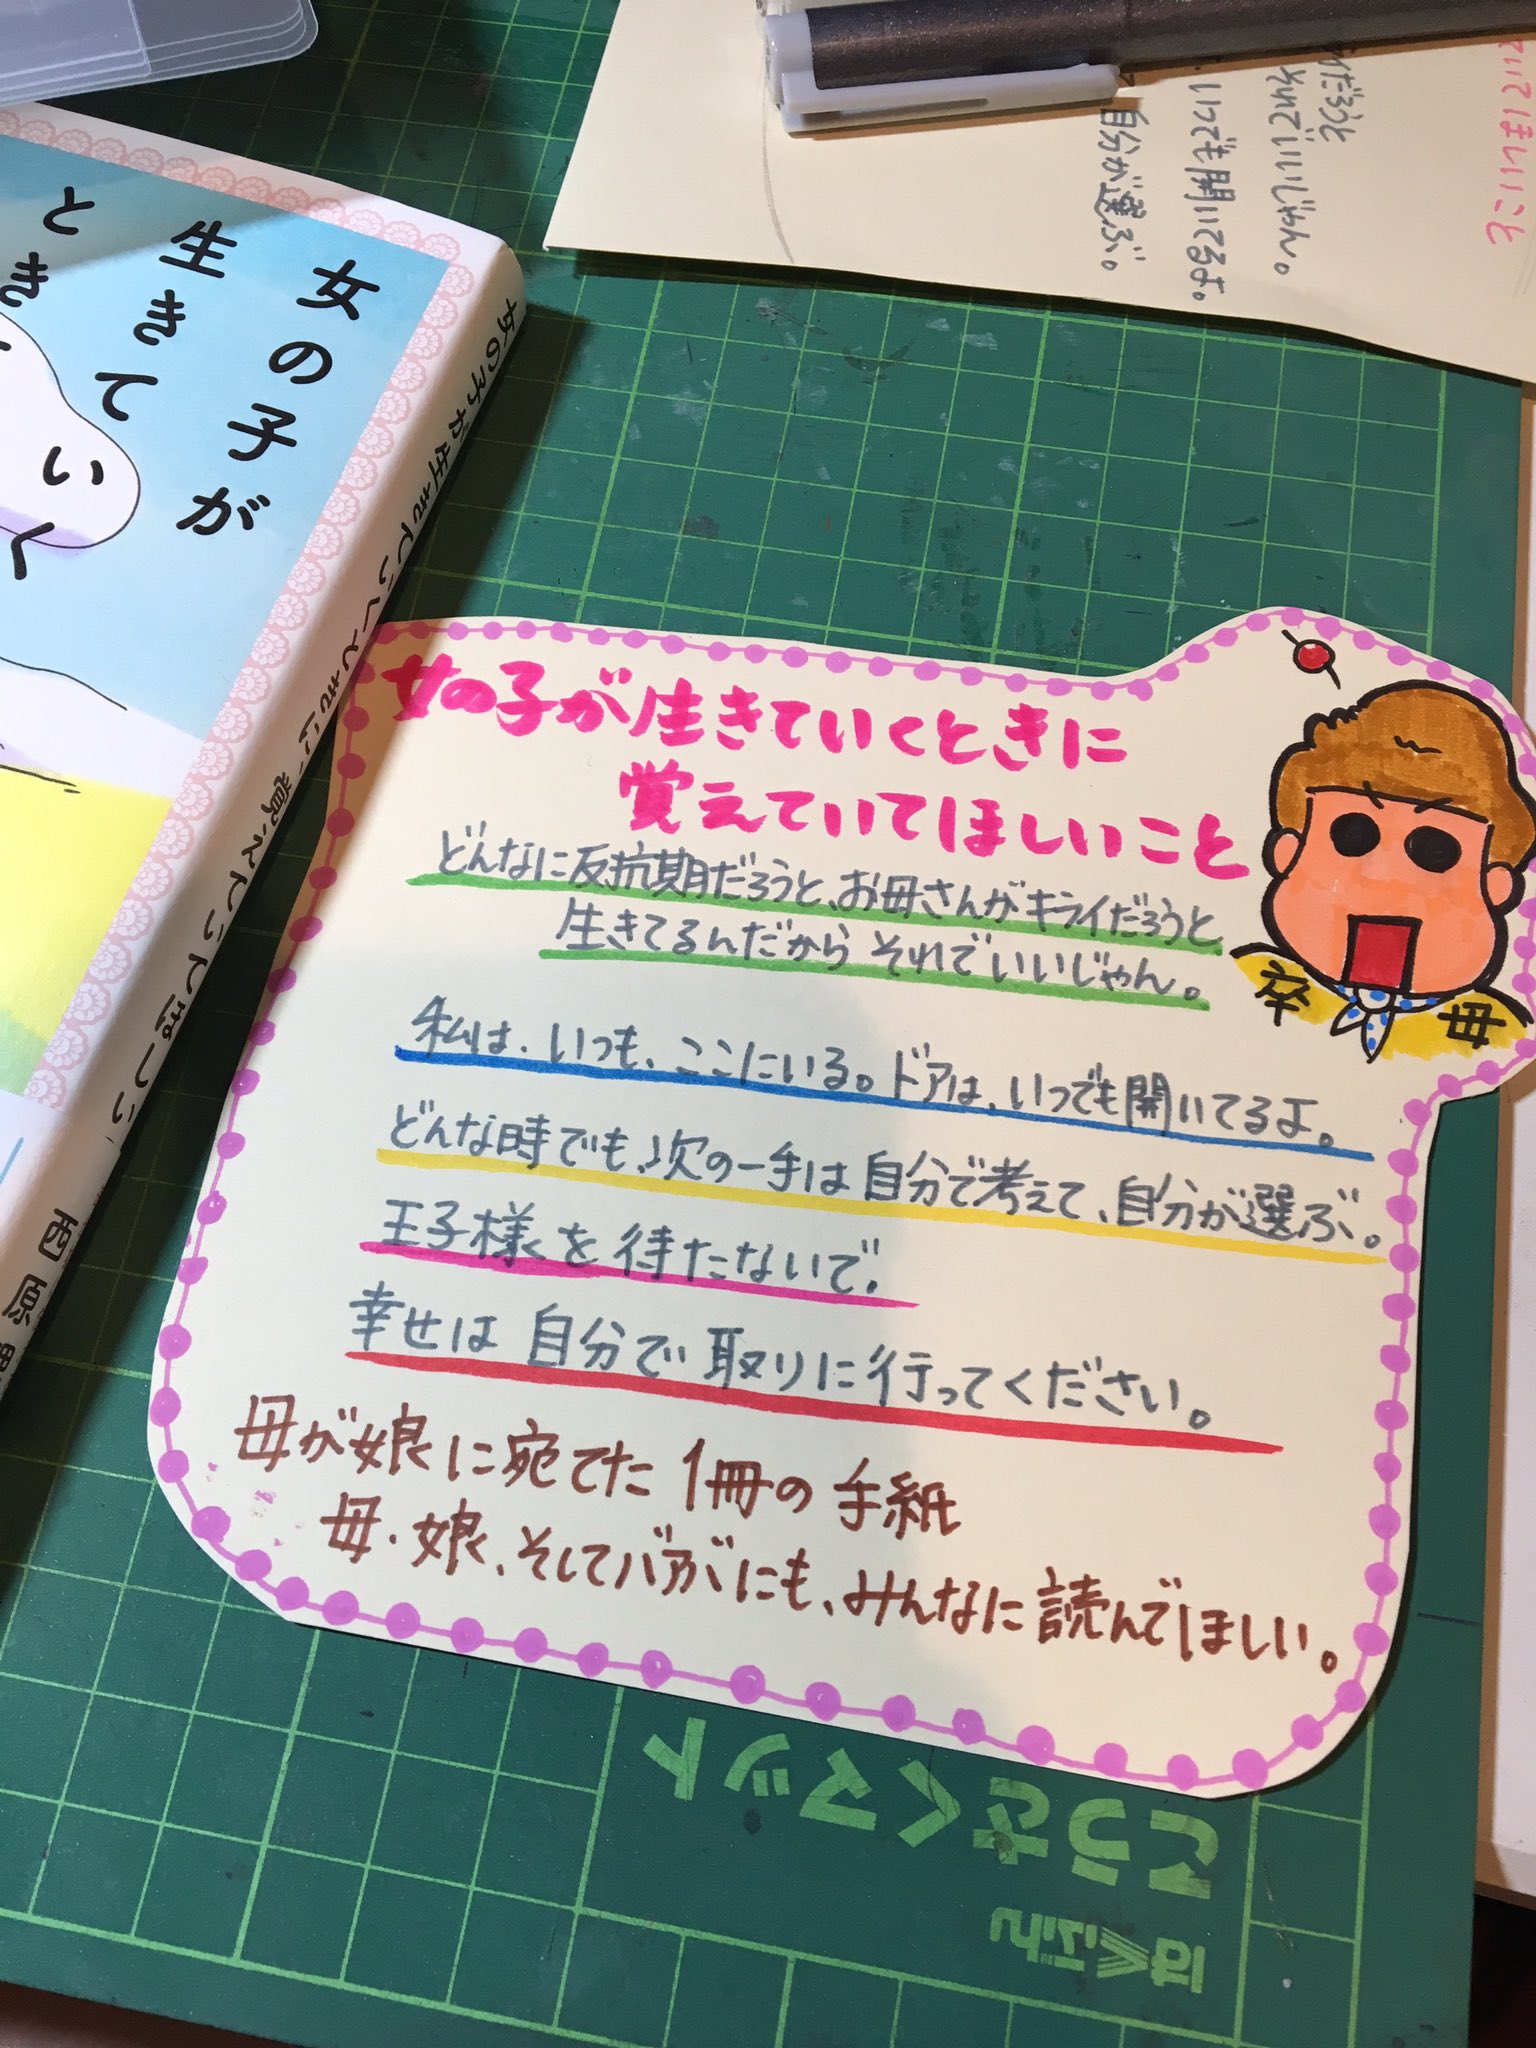 女の子が
生きていく
とき
女の子が生きていくときに、覚えていてほしい
西原
だろうと
それでいいじゃん。
いつでも開いてるよ。
自分が選ぶ。
ていてほしいこと
女の子が生きていくときに
覚えていてほしいこと
どんなに反抗期だろうと、お母さんがキライだろうと
生きてるんだから それでいいじゃん。
私は、いつも、ここにいる。ドアは、いつでも開いてるよ。
どんな時でも、次の一手は自分で考えて、自分が選ぶ。
王子様を待たないで。
幸せは 自分で 取りに行ってください。
母が娘に宛てた 1冊の 手紙
母・娘、そしてバアバにも、みんなに読んでほしい。
卒 母
こうさくマット
ぎんぽう